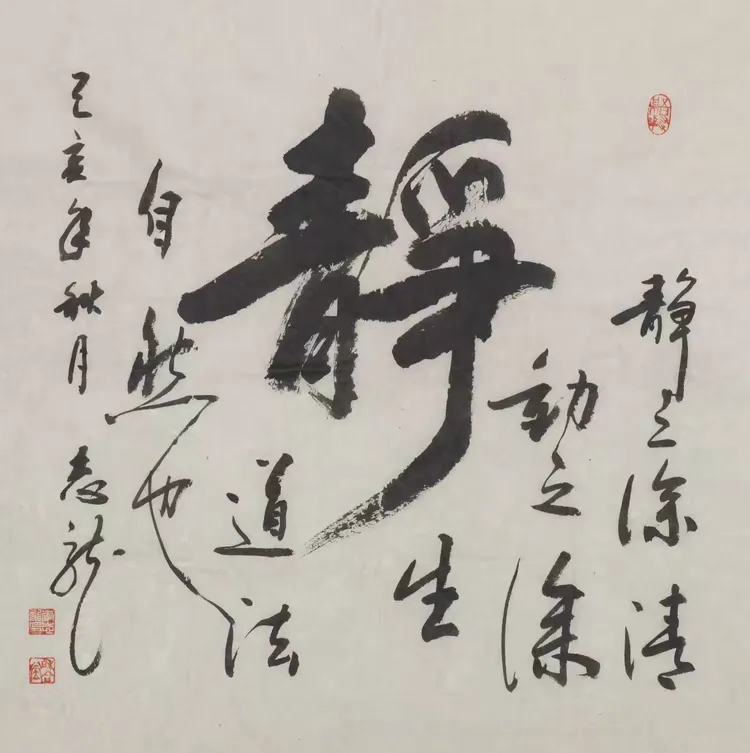 靜
靜之徐清
動之徐
生
道法
自然也
己亥年秋月 志龍